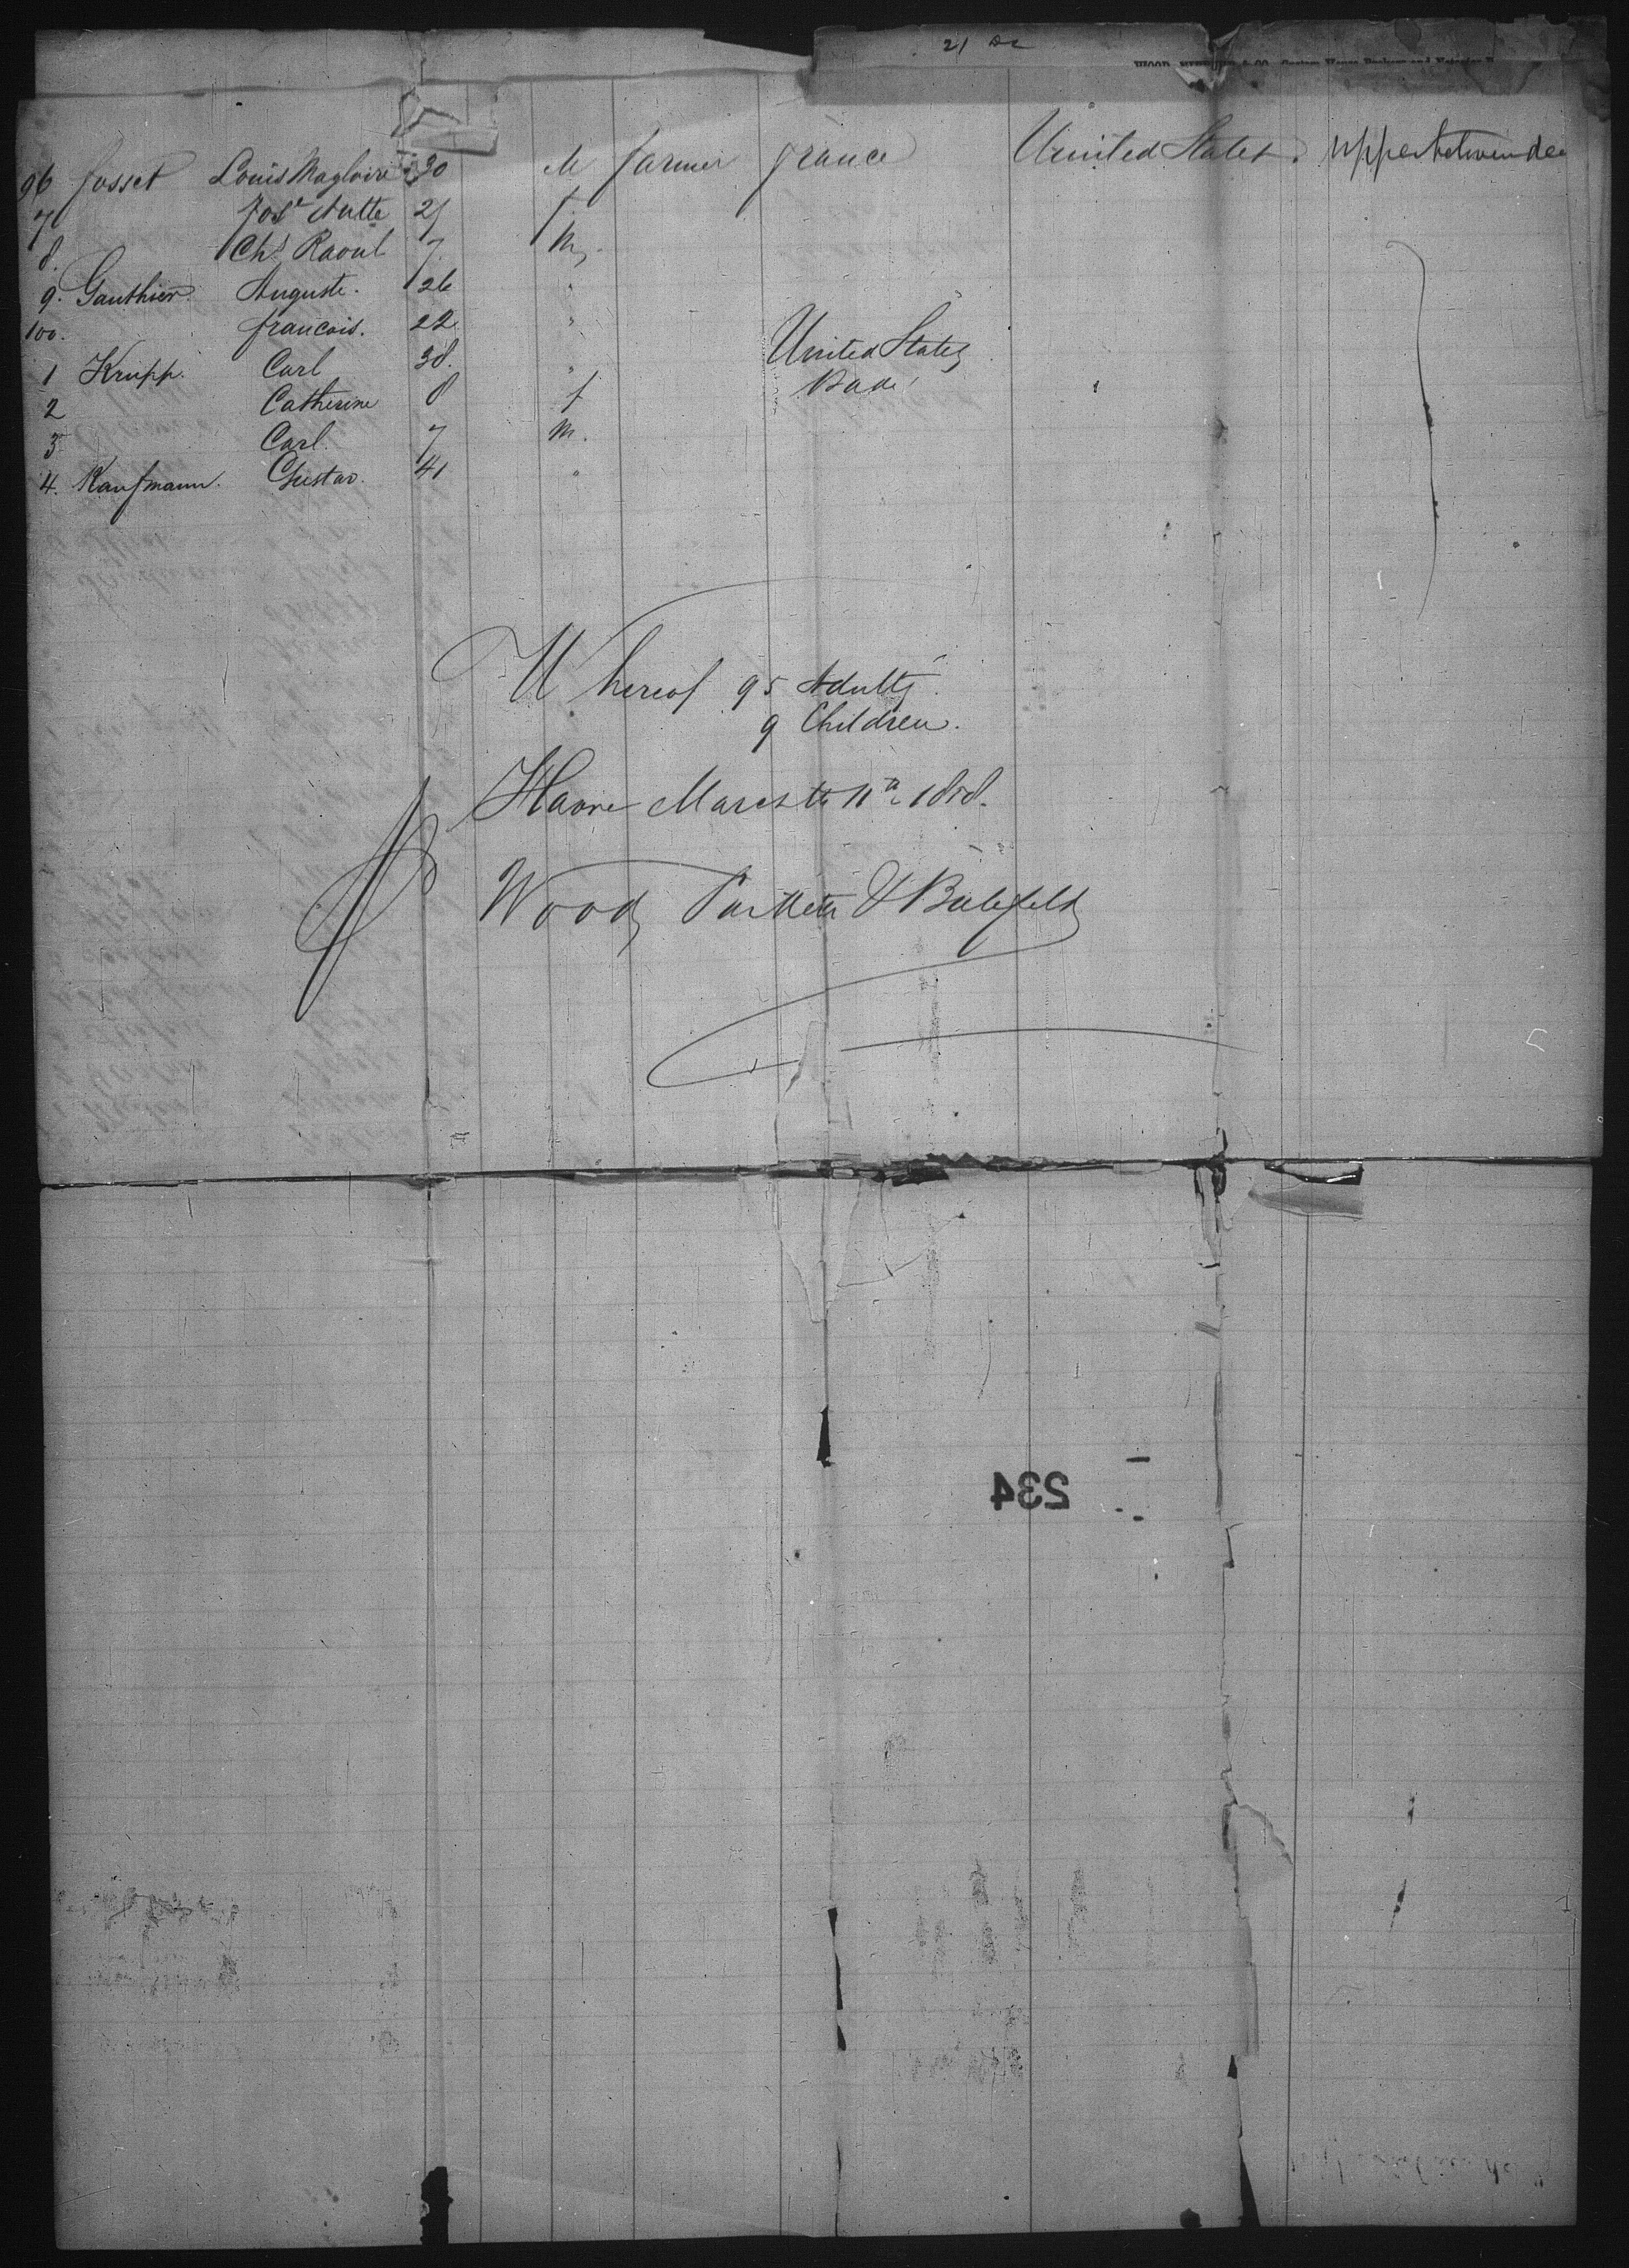 21
96 fosset Louis Magloire 30 M farmer france United States. upper between dec
7 Jos.e 25 f.
8. Ch.s Raoul 7. M.
9. Gauthier. Auguste. 26 "
100. francois. 22 "
1 Krupp. Carl 38. " United States
2 Catherine 8 f Bade
3 Carl. 7 m.
4. Kaufmann. Gustav. 41 "
Whereof 95 Adults
9 Children.
Havre March 11 1858.
Wood & Bielefeld
234